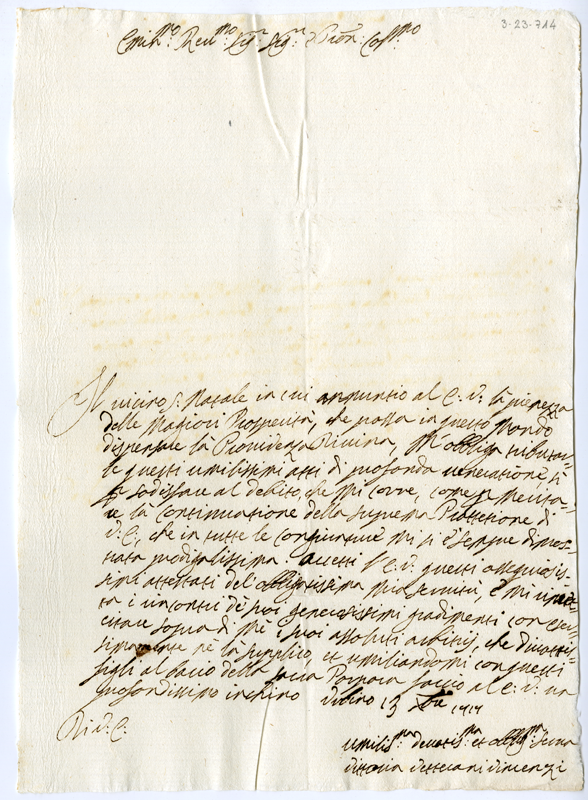 3-23-714
Emin.mo Rev.mo Sig.r Sig.r e Pron: Col.mo
Il vicino S. Natale in cui annuntio al E. V. la pienezza
delle Magiori Prosperità, che possa in questo Mondo
dispensare la Providenza Divina, M'obliga tributar
le questi umilissimi atti di profonda veneratione, sì
p sodisfare al debito, che mi corre, come p Merita-
re la continuatione della suprema Protetione di
V. E., che in tutte le congiunture mi si è sempre dimos-
trata prodigalissima. Accetti l'E. V. questi ossequiosis-
simi attestati del obligatissima mia servitù, e mi
ta i incontri de suoi generosissimi gradimenti con
citare sopra di Mè i suoi assoluti arbitrij, che
ne la supplico et umiliandomi con questi
figli al bacio della Sacra Porpora faccio al E. V. una
profondissimo inchino Urbino 13 Xbre 1714
Di V. E.
Umilis.ma devotis.ma et oblig.ma Serva